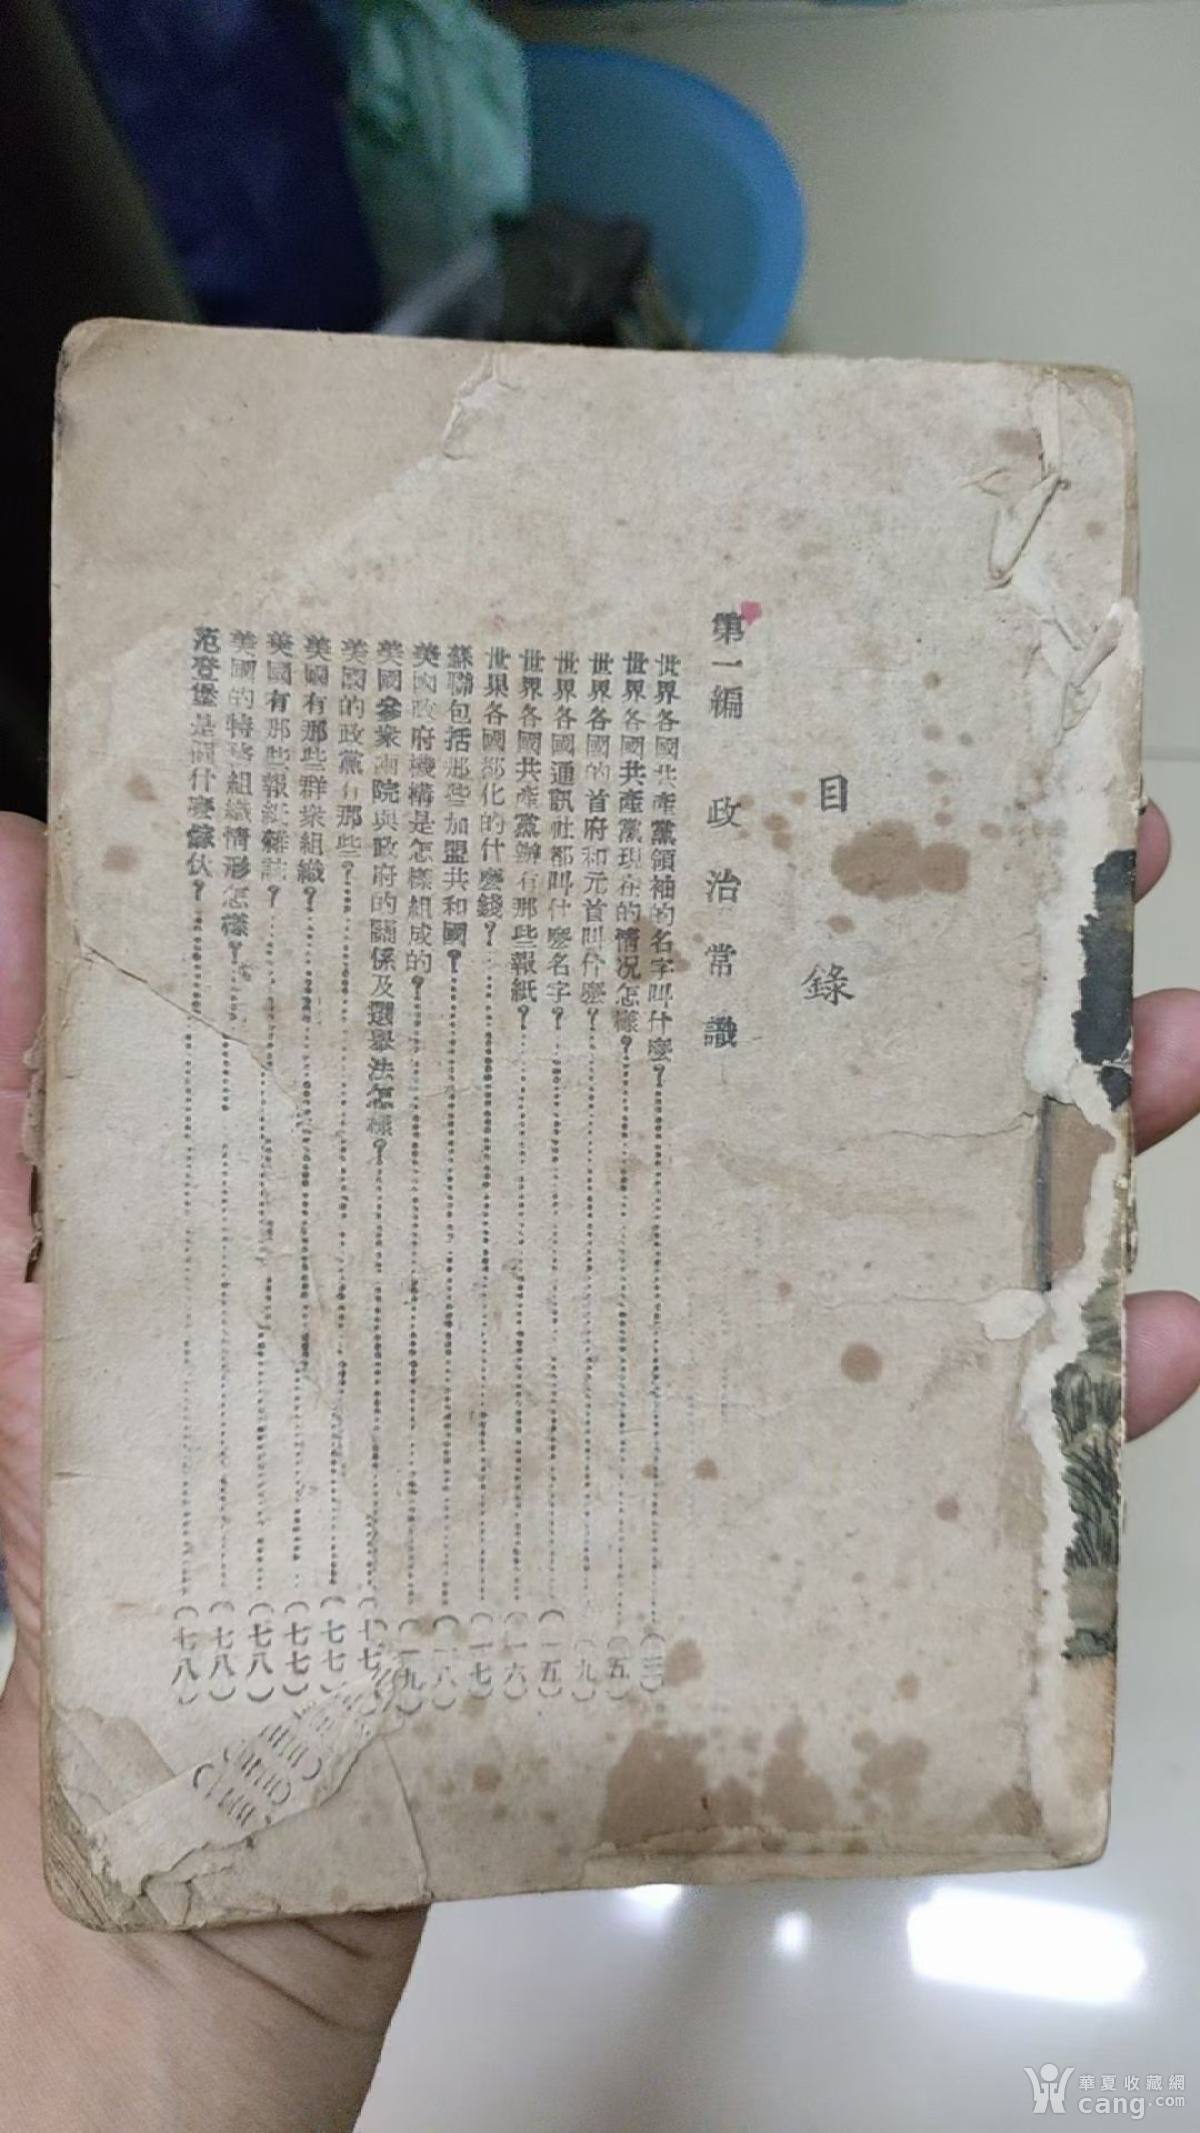 目錄
第一編 政治常識
世界各國共產黨領袖的名字叫什麼?……(三)
世界各國共產黨現在的情况怎樣?……(五)
世界各國的首府和元首叫什麼?……(九)
世界各國通訊社都叫什麼名字?……(一五)
世界各國共產黨辦有那些報紙?……(一六)
世界各國都化的什麼錢?……(一七)
蘇聯包括那些加盟共和國?……(一八)
美國政府機構是怎樣組成的?……(一九)
美國參衆兩院與政府的關係及選舉法怎樣?……(七
美國的政黨有那些?……(七七)
美國有那些群衆組織?……(七七)
美國有那些報紙雜誌?……(七八)
美國的特務組織情形怎樣?……(七八)
范登堡是個什麼傢伙?……(七八)
華夏收藏網
cang.com